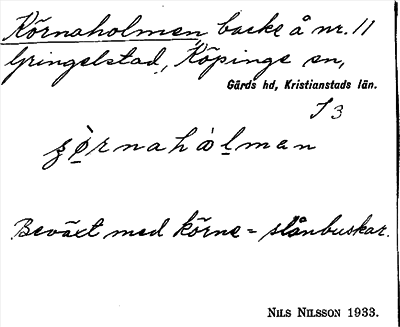 Körnaholmen, backe å nr. 11
Gringelstad, Köpinge sn,
Gärds hd, Kristianstads län.
I 3
Beväxt med körne = slånbuskar.
NILS NILSSON 1933.